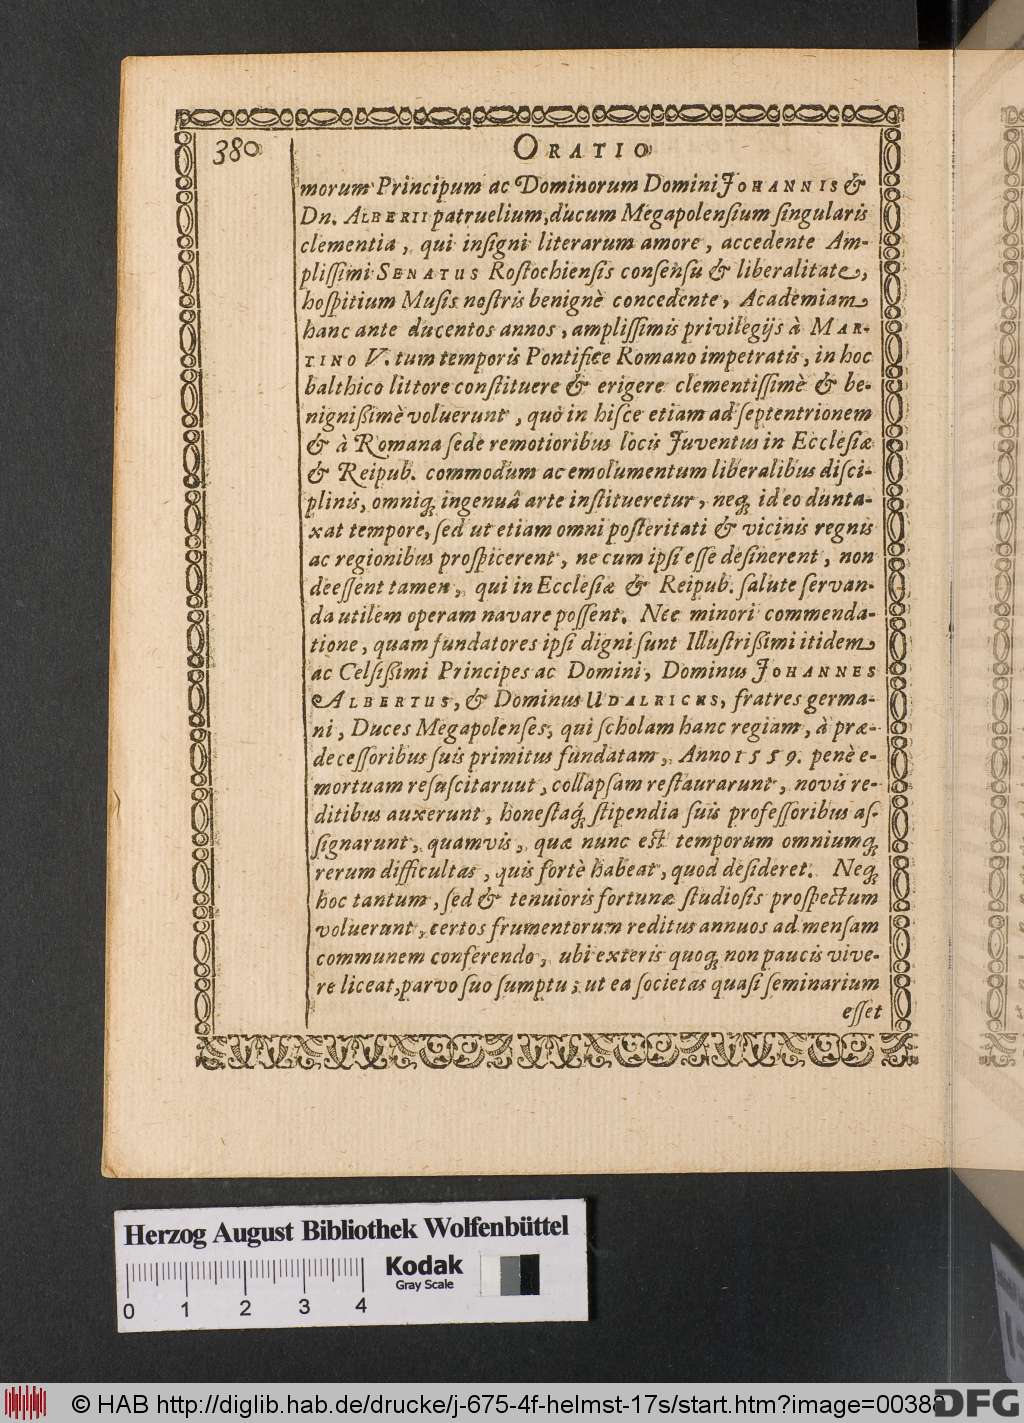 380
ORATIO
morum Principum ac Dominorum Domini JOHANNIS &
Dn. ALBERII patruelium, ducum Megapolensium singularis
clementia, qui insigni literarum amore, accedente Am-
plissimi SENATUS Rostochiensis consensu & liberalitate,
hospitium Musis nostris benignè concedente, Academiam
hanc ante ducentos annos, amplissimis privilegijs à MAR-
TINO V. tum temporis Pontifice Romano impetratis, in hoc
balthico littore constituere & erigere clementissimè & be-
nignißimè voluerunt, quò in hisce etiam ad septentrionem
& à Romana sede remotioribus locis Juventus in Ecclesiæ
& Reipub. commodum ac emolumentum liberalibus disci-
plinis, omniq; ingenuâ arte institueretur, neq; id eo dunta-
xat tempore, sed ut etiam omni posteritati & vicinis regnis
ac regionibus prospicerent, ne cum ipsi esse desinerent, non
deessent tamen, qui in Ecclesiæ & Reipub. salute servan-
da utilem operam navare possent. Nec minori commenda-
tione, quam fundatores ipsi digni sunt Illustrißimi itidem
ac Celsißimi Principes ac Domini, Dominus JOHANNES
ALBERTUS, & Dominus UDALRICHS, fratres germa-
ni, Duces Megapolenses, qui scholam hanc regiam, à præ-
decessoribus suis primitus fundatam, Anno 1559. penè e-
mortuam resuscitaruut, collapsam restaurarunt, novis re-
ditibus auxerunt, honestaq; stipendia suis professoribus as-
signarunt, quamvis, quæ nunc est temporum omniumq;
rerum difficultas, quis fortè habeat, quod desideret. Neq;
hoc tantum, sed & tenuioris fortunæ studiosis prospectum
voluerunt, certos frumentorum reditus annuos ad mensam
communem conferendo, ubi exteris quoq; non paucis vive-
re liceat, parvo suo sumptu; ut ea societas quasi seminarium
esset
Herzog August Bibliothek Wolfenbüttel
Kodak
Gray Scale
0 1 2 3 4
© HAB http://diglib.hab.de/drucke/j-675-4f-helmst-17s/start.htm?image=00388
DFG